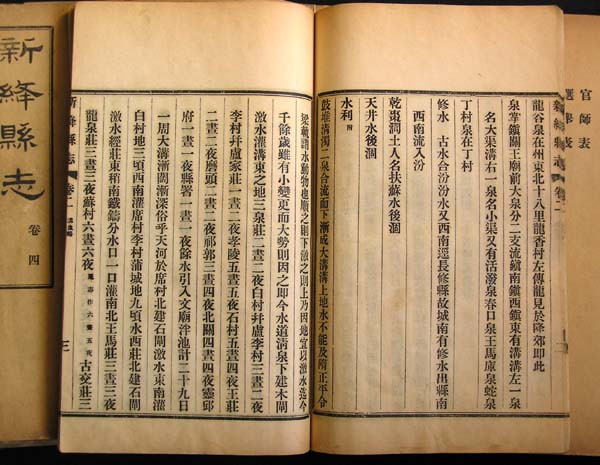 官師表
選舉表
新絳縣志 卷二
龍谷泉在州東北十八里龍香村左傳龍見於降郊即此
泉掌鎮關王廟前大泉分二支流鎮南鎮西鎮東有溝溝左一泉
名大渠溝右一泉名小渠又有活潑泉春口泉王馬庫泉蛇泉
丁村泉在丁村
修水 古水合汾汾水又西南逕長修縣故城南有修水出縣南
西南流入汾
乾棗澗土人名扶蘇水後涸
天井水後涸
水利 附
鼓堆清濁二泉合流而下漸成大溝溝上地水不能及隋正平令
梁軌謂水動物也順之則下激之則上乃因地宜以激水迄今
千餘歲雖有小變更而大勢則因之即今水道清泉下建木閘
激水灌溝東之地三泉莊二晝二夜白村幷盧李村三晝二夜
李村幷盧家莊一晝二夜孝陵五晝五夜石村五晝四夜王莊
二晝二夜磨頭二晝二夜祁郭三晝四夜北關四晝四夜靈邱
府一晝一夜縣署一晝一夜餘水引入文廟泮池計二十九日
一周大溝漸開漸深俗乎天河於席村北建石閘激水東南灌
白村地三頃西南灌席村李村蒲城地九頃水西莊北建石閘
激水經莊東稍南鐵鑄分水口一口灌南北王馬莊三晝三夜
龍泉莊三晝三夜蘇村六晝六夜 舊志作六晝五夜 古交莊三
新絳縣志 卷二 三
新絳縣志 卷四